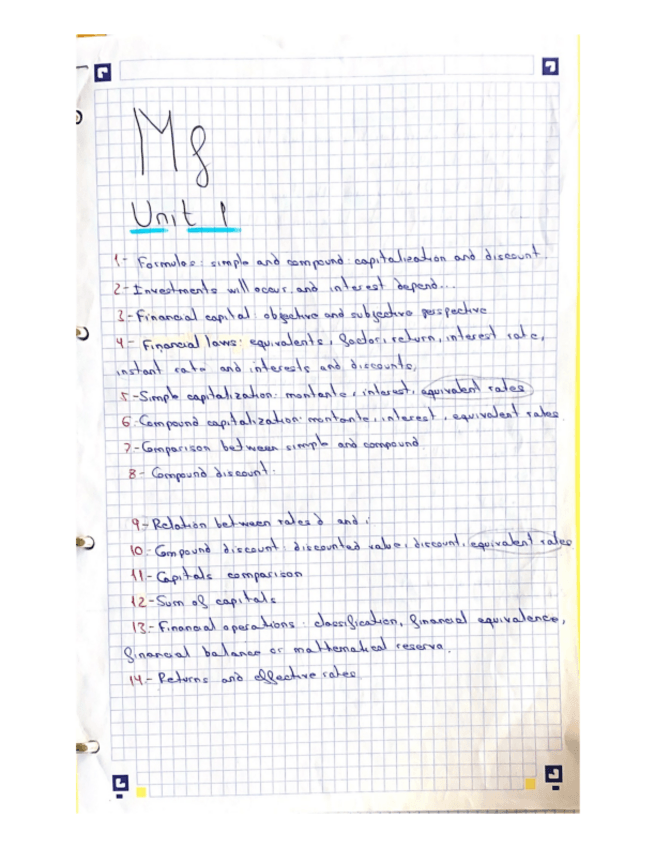 Mf
Unit 1
1- Formulas: simple and compound capitalization and discount.
2- Investments will occur and interest depend...
3- Financial capital: objective and subjective perspective
4- Financial laws: equivalents, factor, return, interest rate,
instant rate and interests and discounts,
5- Simple capitalization: montante, interest, equivalent rates
6- Compound capitalization: montante, interest, equivalent rates.
7- Comparison between simple and compound.
8- Compound discount.
9- Relation between rates d and i
10- Compound discount: discounted value, discount, equivalent rates
11- Capitals comparison
12- Sum of capitals
13- Financial operations: classification, financial equivalence,
financial balance or mathematical reserva.
14- Returns and effective rates